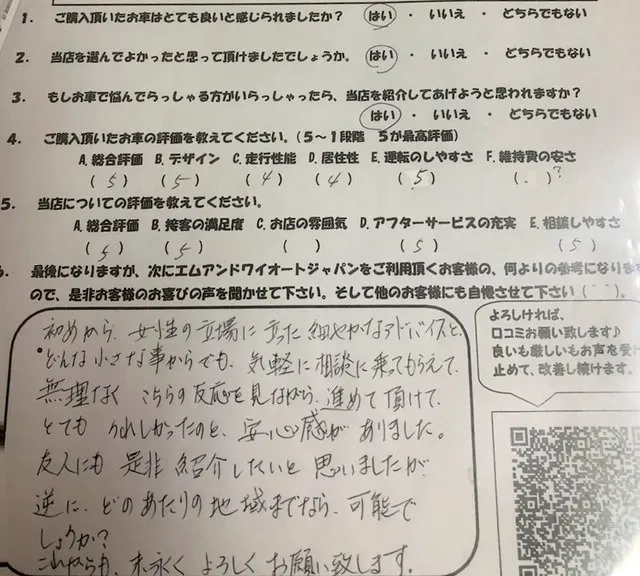 1. ご購入頂いたお車はとても良いと感じられましたか? はい ・ いいえ ・ どちらでもない
2. 当店を選んでよかったと思って頂けましたでしょうか。 はい ・ いいえ ・ どちらでもない
3. もしお車で悩んでらっしゃる方がいらっしゃったら、当店を紹介してあげようと思われますか?
はい ・ いいえ ・ どちらでもない
4. ご購入頂いたお車の評価を教えてください。(5~1段階 5が最高評価)
A.総合評価 B.デザイン C.走行性能 D.居住性 E.運転のしやすさ F.維持費の安さ
(5) (5) (4) (4) (5) (.)?
5. 当店についての評価を教えてください。
A.総合評価 B.接客の満足度 C.お店の雰囲気 D.アフターサービスの充実 E.相談しやすさ
(5) (5) ( ) (5) (5)
最後になりますが、次にエムアンドワイオートジャパンをご利用頂くお客様の、何よりの参考になりま
ので、是非お客様のお喜びの声を聞かせて下さい。そして他のお客様にも自慢させて下さい(^^)。
初めから、女性の立場に立った細やかなアドバイスと、
・どんな小さな事からでも、気軽に相談に乗ってもらえて、
無理なく こちらの反応を見ながら、進めて頂けて、
とても うれしかったのと、安心感が ありました。
友人にも 是非 紹介したいと 思いましたが
逆に、どのあたりの地域までなら、可能で
しょうか?
これからも、末永く よろしく お願い致します。
よろしければ、
口コミお願い致します♪
良いも厳しいもお声を受け
止めて、改善し続けます。